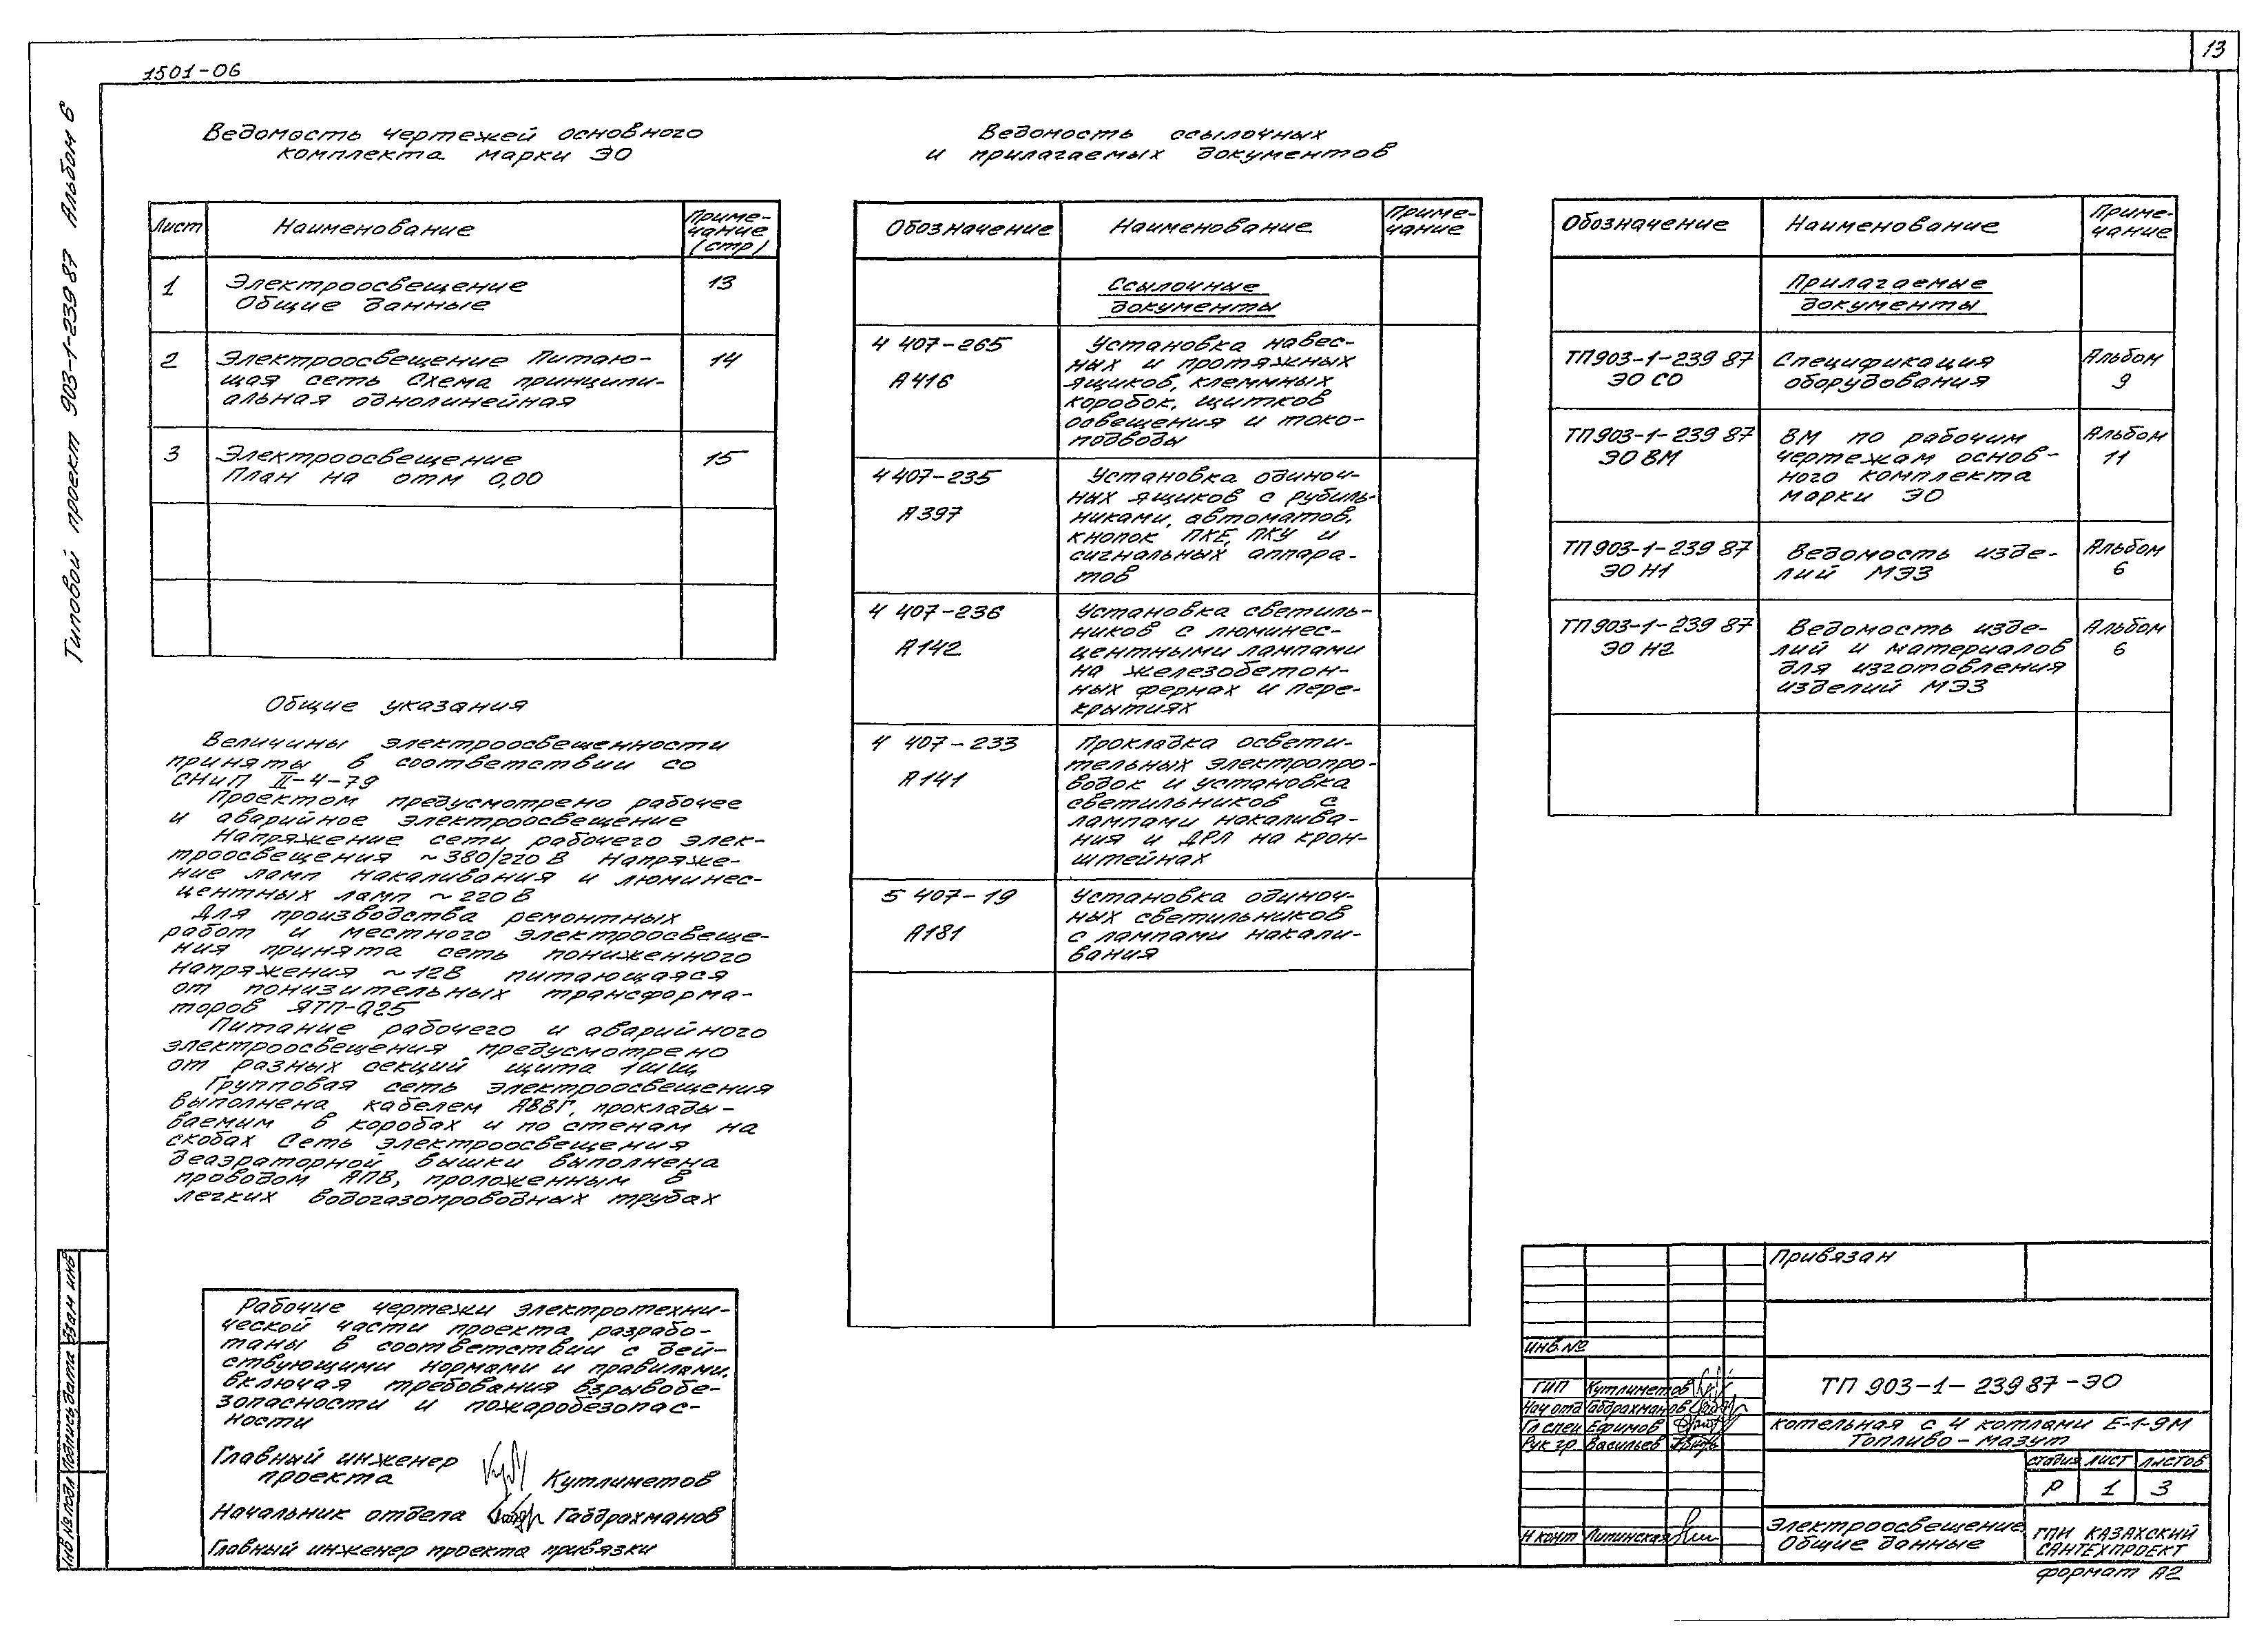 1501-06
13
Типовой проект 903-1-239 87 Альбом 6
Ведомость чертежей основного
комплекта марки ЭО
Лист
Наименование
Приме-
чание
(стр)
1
Электроосвещение
Общие данные
13
2
Электроосвещение Питаю-
щая сеть Схема принципи-
альная однолинейная
14
3
Электроосвещение
План на отм 0,00
15
Общие указания
Величины электроосвещенности
приняты в соответствии со
СНиП II-4-79
Проектом предусмотрено рабочее
и аварийное электроосвещение
Напряжение сети рабочего элек-
троосвещения ~380/220 В Напряже-
ние ламп накаливания и люминес-
центных ламп ~220 В
Для производства ремонтных
работ и местного электроосвеще-
ния принята сеть пониженного
напряжения ~12В питающаяся
от понизительных трансформа-
торов ЯТП-0,25
Питание рабочего и аварийного
электроосвещения предусмотрено
от разных секций щита 1ШЩ
Групповая сеть электроосвещения
выполнена кабелем АВВГ, проклады-
ваемым в коробах и по стенам на
скобах Сеть электроосвещения
деаэраторной вышки выполнена
проводом АПВ, проложенным в
легких водогазопроводных трубах
Рабочие чертежи электротехни-
ческой части проекта разрабо-
таны в соответствии с дей-
ствующими нормами и правилами,
включая требования взрывобе-
зопасности и пожаробезопас-
ности
Главный инженер
проекта Кутлиметов
Начальник отдела Габдрахманов
Главный инженер проекта привязки
Ведомость ссылочных
и прилагаемых документов
Обозначение
Наименование
Приме-
чание
Ссылочные
документы
4 407-265
А416
Установка навес-
ных и протяжных
ящиков, клеммных
коробок, щитков
освещения и токо-
подводы
4 407-235
А397
Установка одиноч-
ных ящиков с рубиль-
никами, автоматов,
кнопок ПКЕ, ПКУ и
сигнальных аппара-
тов
4 407-236
А142
Установка светиль-
ников с люминес-
центными лампами
на железобетон-
ных фермах и пере-
крытиях
4 407-233
А141
Прокладка освети-
тельных электропро-
водок и установка
светильников с
лампами накалива-
ния и ДРЛ на крон-
штейнах
5 407-19
А181
Установка одиноч-
ных светильников
с лампами накали-
вания
Обозначение
Наименование
Приме-
чание
Прилагаемые
документы
ТП903-1-239 87
ЭО СО
Спецификация
оборудования
Альбом
9
ТП903-1-239 87
ЭО ВМ
ВМ по рабочим
чертежам основ-
ного комплекта
марки ЭО
Альбом
11
ТП903-1-239 87
ЭО Н1
Ведомость изде-
лий МЭЗ
Альбом
6
ТП903-1-239 87
ЭО Н2
Ведомость изде-
лий и материалов
для изготовления
изделий МЭЗ
Альбом
6
Привязан
инв.№
ТП 903-1-239 87-ЭО
ГИП Кутлиметов
Нач отд Габдрахманов
Гл спец Ефимов
Рук гр. Васильев
Н конт Липинская
Котельная с 4 котлами Е-1-9М
Топливо-мазут
стадия лист листов
Р 1 3
Электроосвещение
Общие данные
ГПИ КАЗАХСКИЙ
САНТЕХПРОЕКТ
формат А2
Инв № подл Подпись дата Взам инв